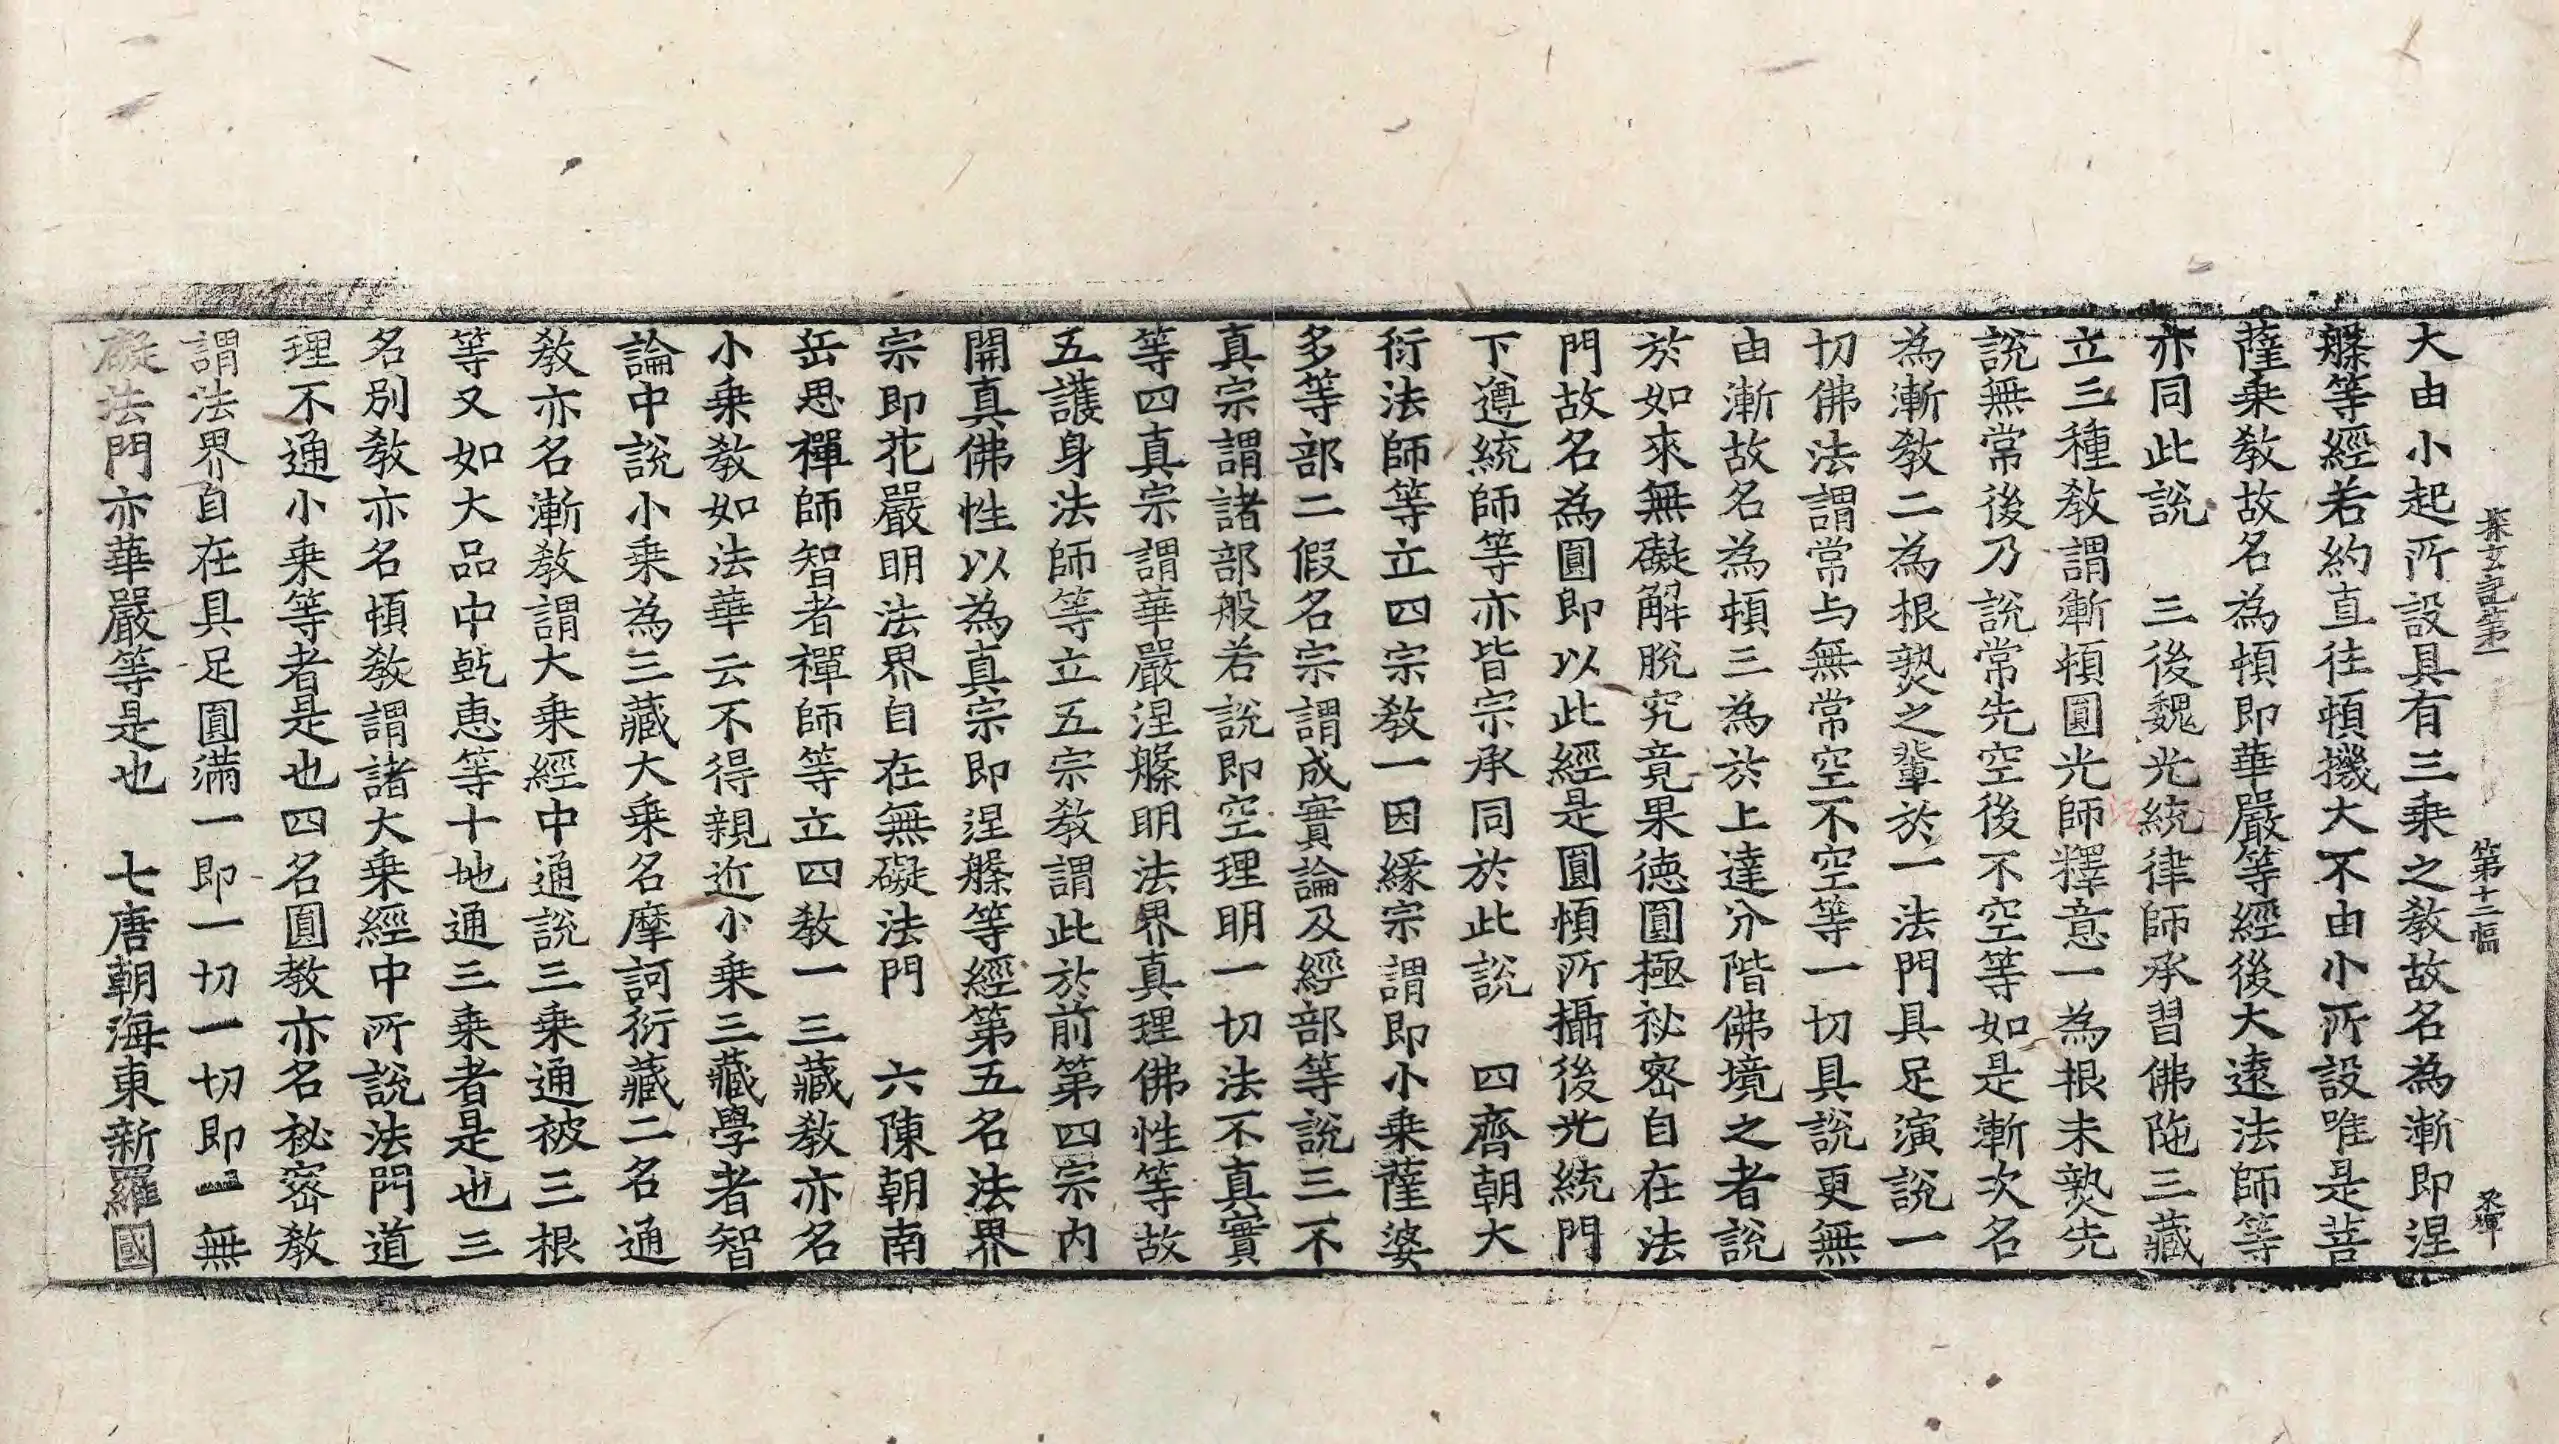 探玄記第一 第十二幅 永暉
大由小起所設具有三乗之教故名為漸即涅
槃等經若約直往頓機大不由小所設唯是菩
薩乗教故名為頓即華嚴等經後大遠法師等
亦同此說 三後魏光統律師承習佛陁三藏
立三種教謂漸頓圓光師釋意一為根未熟先
說無常後乃說常先空後不空等如是漸次名
為漸教二為根熟之輩於一法門具足演說一
切佛法謂常与無常空不空等一切具說更無
由漸故名為頓三為於上達分階佛境之者說
於如來無礙解脫究竟果德圓極祕密自在法
門故名為圓即以此經是圓頓所攝後光統門
下遵統師等亦皆宗承同於此說 四齊朝大
衍法師等立四宗教一因緣宗謂即小乗薩婆
多等部二假名宗謂成實論及經部等說三不
真宗謂諸部般若說即空理明一切法不真實
等四真宗謂華嚴涅槃明法界真理佛性等故
五護身法師等立五宗教謂此於前第四宗内
開真佛性以為真宗即涅槃等經第五名法界
宗即花嚴明法界自在無礙法門 六陳朝南
岳思禪師智者禪師等立四教一三藏教亦名
小乗教如法華云不得親近小乗三藏學者智
論中說小乗為三藏大乗名摩訶衍藏二名通
教亦名漸教謂大乗經中通說三乗通被三根
等又如大品中乹恵等十地通三乗者是也三
名別教亦名頓教謂諸大乗經中所說法門道
理不通小乗等者是也四名圓教亦名祕密教
謂法界自在具足圓滿一即一切一切即一無
礙法門亦華嚴等是也 七唐朝海東新羅國